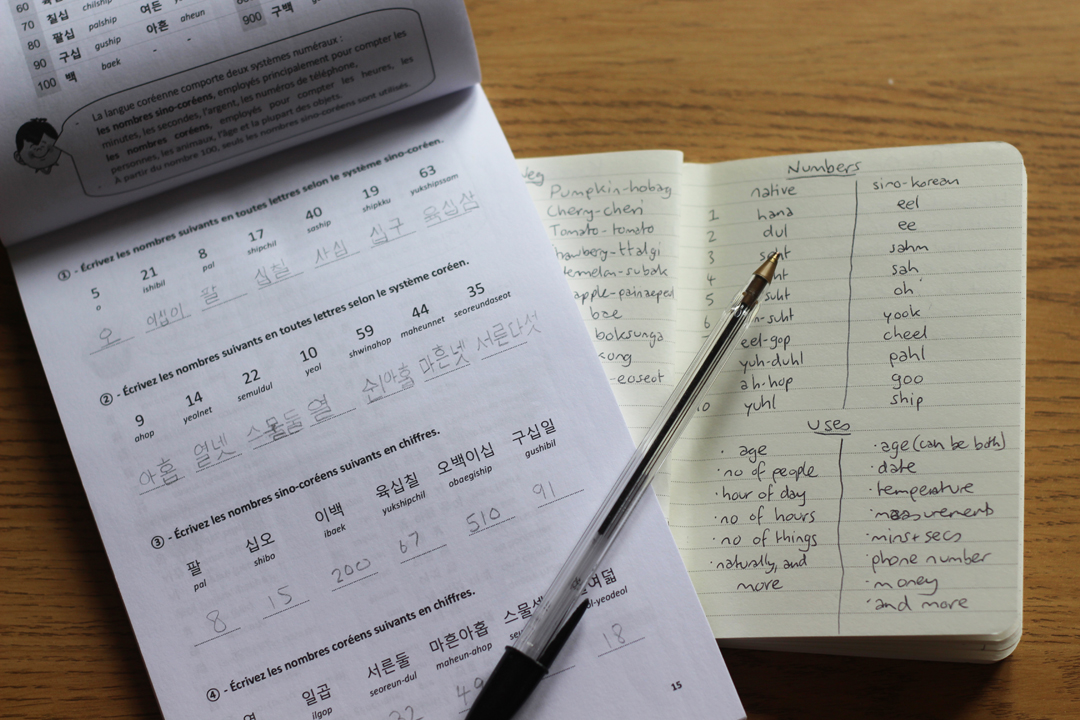 60
70 칠십 chilship 여든
80 팔십 palship 아흔 aheun
90 구십 guship - -
100 백 baek
900 구백
La langue coréenne comporte deux systèmes numéraux :
les nombres sino-coréens, employés principalement pour compter les
minutes, les secondes, l'argent, les numéros de téléphone,
les nombres coréens, employés pour compter les heures, les
personnes, les animaux, l'âge et la plupart des objets.
À partir du nombre 100, seuls les nombres sino-coréens sont utilisés.
① - Écrivez les nombres suivants en toutes lettres selon le système sino-coréen.
5 21 8 17 40 19 63
o ishibil pal shipchil saship shipkku yukshipssam
오 이십이 팔 십칠 사십 십구 육십삼
② - Écrivez les nombres suivants en toutes lettres selon le système coréen.
9 14 22 10 59 44 35
ahop yeolnet semuldul yeol shwinahop maheunnet seoreundaseot
아홉 열넷 스물둘 열 쉰아홉 마흔넷 서른다섯
③ - Écrivez les nombres sino-coréens suivants en chiffres.
팔 십오 이백 육십칠 오백이십 구십일
pal shibo ibaek yukshipchil obaegiship gushibil
8 15 200 67 510 91
④ - Écrivez les nombres coréens suivants en chiffres.
일곱 서른둘 마흔아홉
ilgop seoreun-dul maheun-ahop
32 49 18
15
Veg
Pumpkin-hobag
Cherry-cheri
Tomato-tomato
bae
boksunga
Numbers
native sino-korean
1 hana eel
2 dul ee
3 sahm
4 sah
5 oh
6 yook
eel-gop cheel
yuh-duhl pahl
ah-hop goo
yuhl ship
uses
· age · age (can be both)
· no of people · date
· hour of day · temperature
· no of hours · measurements
· no of things · mins + secs
· naturally, and · phone number
more · money
· and more